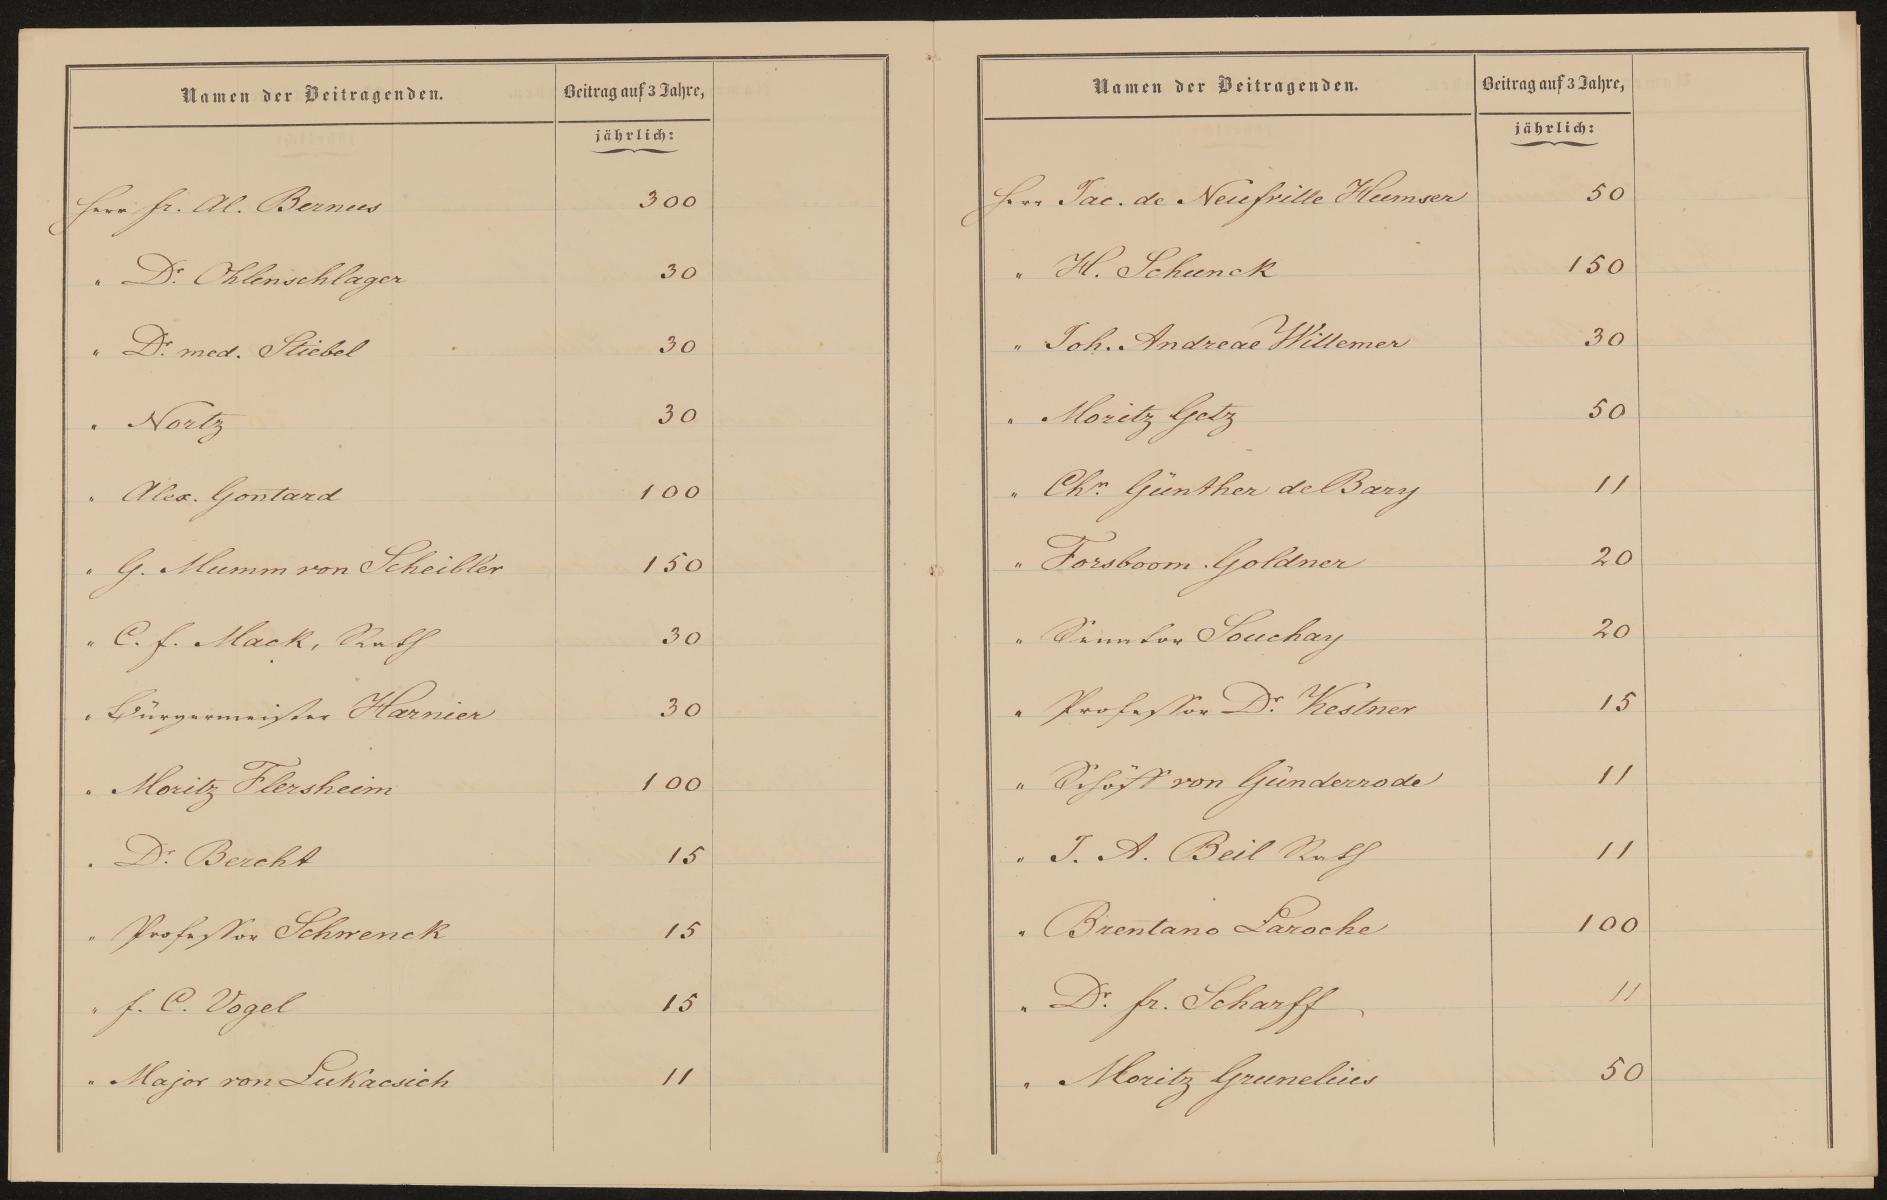 Namen der Beitragenden. Beitrag auf 3 Jahre,
jährlich:
Herr Fr. Al. Bernus 300
" Dr. Ohlenschlager 30
" Dr. med. Stiebel 30
" Nortz 30
" Alex. Gontard 100
" G. Mumm von Scheibler 150
" C. F. Mack, Rath 30
" Bürgermeister Harnier 30
" Moritz Flersheim 100
" Dr. Bercht 15
" Professor Schwenck 15
" F. C. Vogel 15
" Major von Lukacsich 11
Namen der Beitragenden. Beitrag auf 3 Jahre,
jährlich:
Herr Jac. de Neufville Humser 50
" H. Schunck 150
" Joh. Andreae Willemer 30
" Moritz Getz 50
" Chr. Günther de Bary 11
" Forsboom. Goldner 20
" Senator Souchay 20
" Professor Dr. Kestner 15
" Schöff von Günderrode 11
" J. A. Beil Rath 11
" Brentano Laroche 100
" Dr. Fr. Scharff 11
" Moritz Grunelius 50